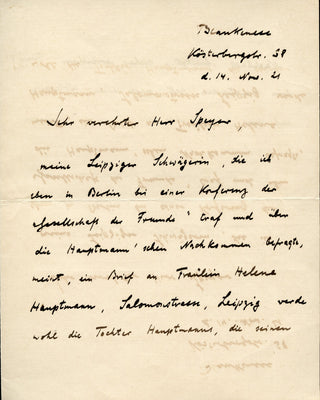 Blankenese
Kösterbergstr. 58
d. 14. Nov. 21
Sehr verehrter Herr Speyer,
meine Leipziger Schwägerin, die ich
eben in Berlin bei einer Konferenz der
Gesellschaft der Freunde" traf und über
die Hauptmann'schen Nachkommen befragte,
meint, ein Brief an Fräulein Helene
Hauptmann, Salomonstrasse, Leipzig werde
wohl die Tochter Hauptmanns, die seinen